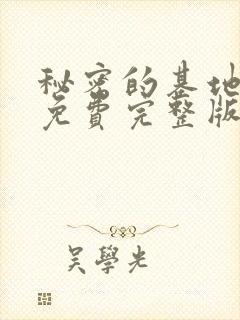 秘密的基地
免費完整版
吴學光